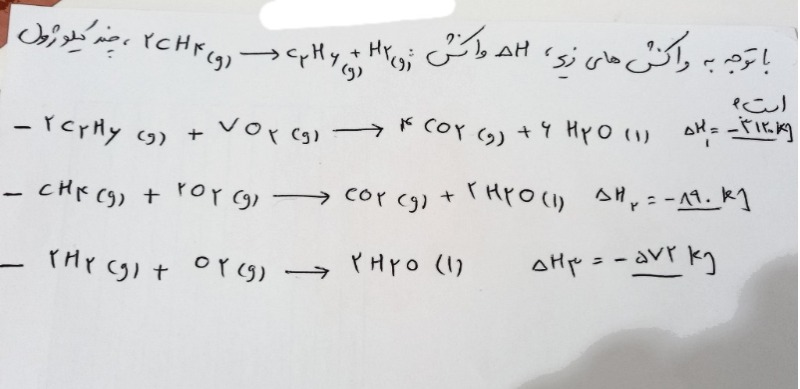 با توجه به واکنش های زیر، ΔH واکنش ۲CH۴(g) → C۲H۶(g) + H۲(g)، چند کیلوژول است؟
- ۲C۲H۶ (g) + ۷O۲ (g) → ۴CO۲ (g) + ۶H۲O (l) ΔH۱ = -۳۱۲۰ kJ
- CH۴ (g) + ۲O۲ (g) → CO۲ (g) + ۲H۲O (l) ΔH۲ = -۸۹۰ kJ
- ۲H۲ (g) + O۲ (g) → ۲H۲O (l) ΔH۳ = -۵۷۲ kJ